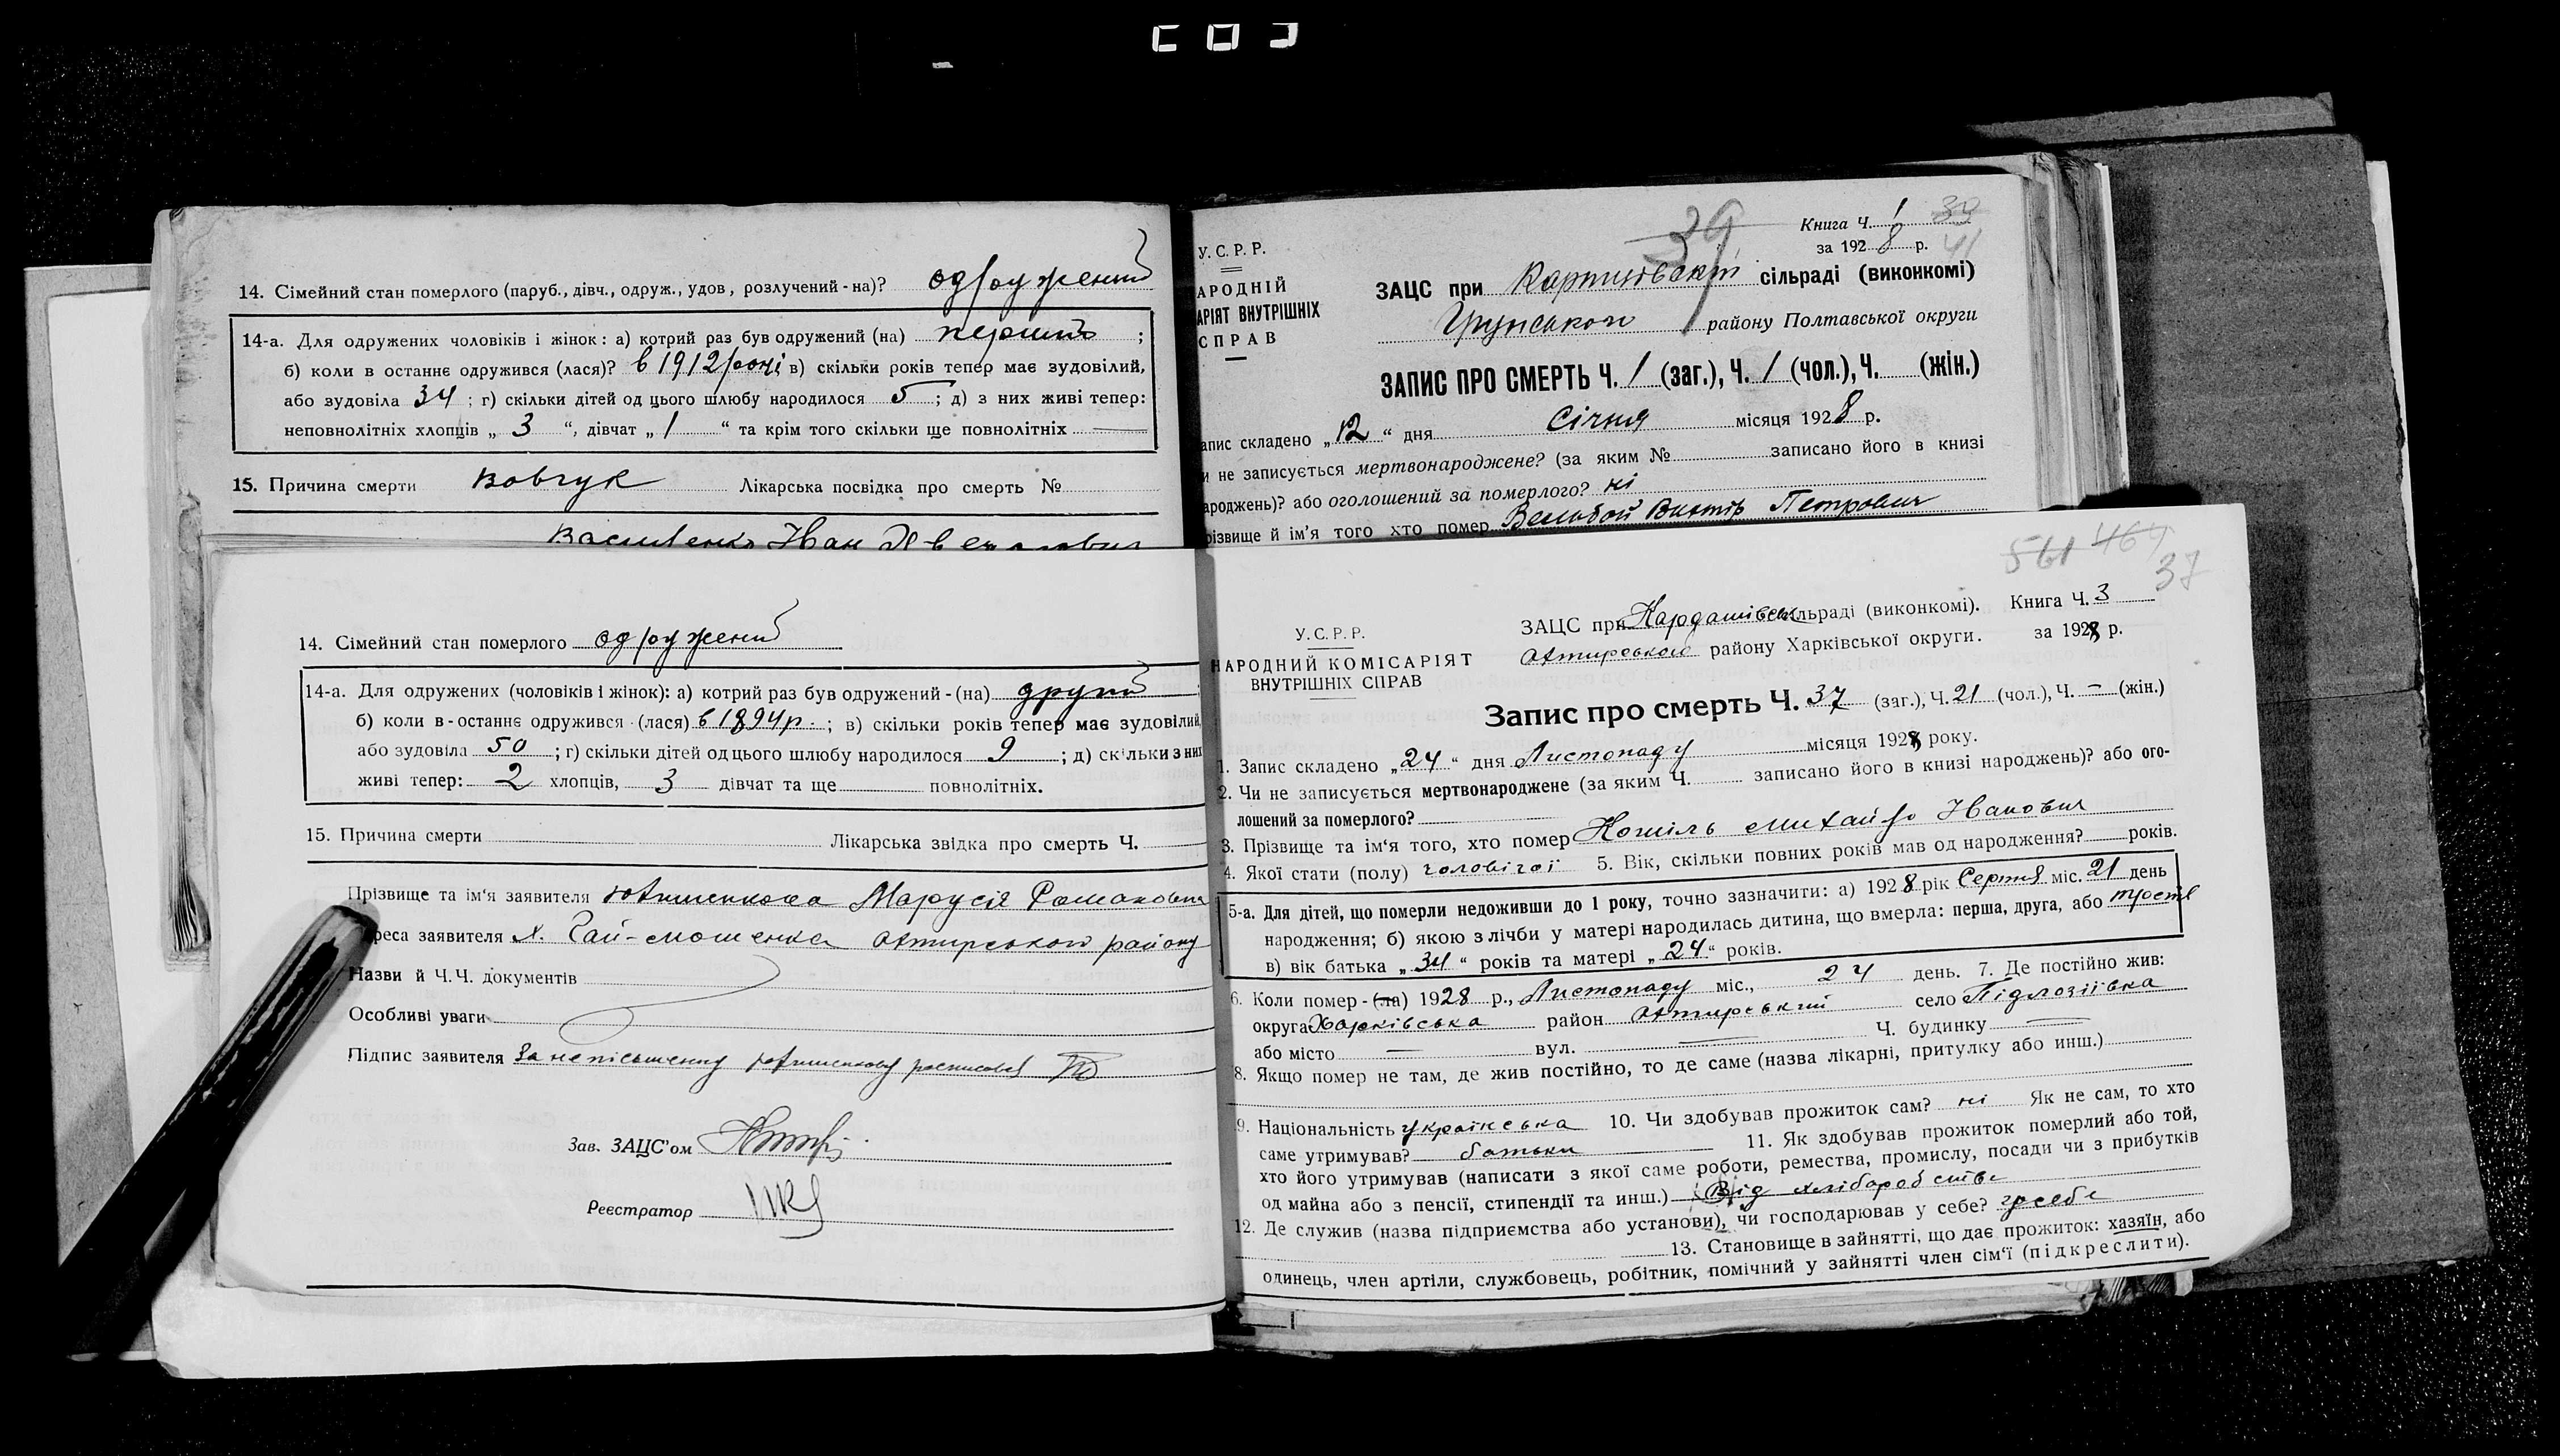 14. Сімейний стан померлого (паруб., дівч., одруж., удов, розлучений-на)? одружений
14-а. Для одружених чоловіків і жінок: а) котрий раз був одружений (на) перший ;
б) коли в останнє одружився (лася)? в 1912 році в) скільки років тепер має зудовілий,
або зудовіла 34 ; г) скільки дітей од цього шлюбу народилося 5 ; д) з них живі тепер:
неповнолітніх хлопців „ 3 “, дівчат „ 1 “ та крім того скільки ще повнолітніх
15. Причина смерти вовчук Лікарська посвідка про смерть №
Василенко Іван
39
Книга Ч. 1 39
за 1928 р. 41
У.С.Р.Р.
АРОДНІЙ
АРІЯТ ВНУТРІШНІХ
СПРАВ
ЗАЦС при сільраді (виконкомі)
Грунського району Полтавської округи
ЗАПИС ПРО СМЕРТЬ Ч. 1 (заг.), Ч. 1 (чол.), Ч. (жін.)
апис складено „12“ дня Січня місяця 1928 р.
и не записується мертвонароджене? (за яким № записано його в книзі
ароджень)? або оголошений за померлого? ні
різвище й ім’я того хто помер Виктір Петрович
14. Сімейний стан померлого одружений
14-а. Для одружених (чоловіків і жінок): а) котрий раз був одружений-(на) другий
б) коли в-останнє одружився (лася) в 1894 р. ; в) скільки років тепер має зудовілий,
або зудовіла 50 ; г) скільки дітей од цього шлюбу народилося 9 ; д) скільки з них
живі тепер: 2 хлопців, 3 дівчат та ще повнолітніх.
15. Причина смерти Лікарська звідка про смерть Ч.
Прізвище та ім‘я заявителя Маруся Романовна
реса заявителя х. Гай-мошенка Охтирського району
Назви й Ч.Ч. документів
Особливі уваги
Підпис заявителя За неписьменну
Зав. ЗАЦС’ом
Реєстратор
561 464
37
У.С.Р.Р.
НАРОДНИЙ КОМІСАРІЯТ
ВНУТРІШНІХ СПРАВ
ЗАЦС при Кардашівськ льраді (виконкомі). Книга Ч. 3
Охтирського району Харківської округи. за 1928 р.
Запис про смерть Ч. 37 (заг.), Ч. 21 (чол.), Ч. – (жін.)
1. Запис складено „24“ дня Листопаду місяця 1928 року.
2. Чи не записується мертвонароджене (за яким Ч. записано його в книзі народжень)? або ого-
лошений за померлого?
3. Прізвище та ім‘я того, хто помер Кошіль Михайло Іванович
4. Якої стати (полу) чоловічої 5. Вік, скільки повних років мав од народження? років.
5-а. Для дітей, що померли недоживши до 1 року, точно зазначити: а) 1928 рік Серпня міс. 21 день
народження; б) якою з лічби у матері народилась дитина, що вмерла: перша, друга, або третя
в) вік батька „34“ років та матері „24“ років.
6. Коли помер-(ла) 1928 р., Листопаду міс., 24 день. 7. Де постійно жив:
округа Харківська район Охтирський село Підлозіївка
або місто — вул. — Ч. будинку —
8. Якщо помер не там, де жив постійно, то де саме (назва лікарні, притулку або инш.)
9. Національність українська 10. Чи здобував прожиток сам? ні Як не сам, то хто
саме утримував? батьки 11. Як здобував прожиток померлий або той,
хто його утримував (написати з якої саме роботи, ремества, промислу, посади чи з прибутків
од майна або з пенсії, стипендії та инш.) Від хліборобства
12. Де служив (назва підприємства або установи), чи господарював у себе? у себе
13. Становище в зайнятті, що дає прожиток: хазяїн, або
одинець, член артіли, службовець, робітник, помічний у зайнятті член сім‘ї (підкреслити).